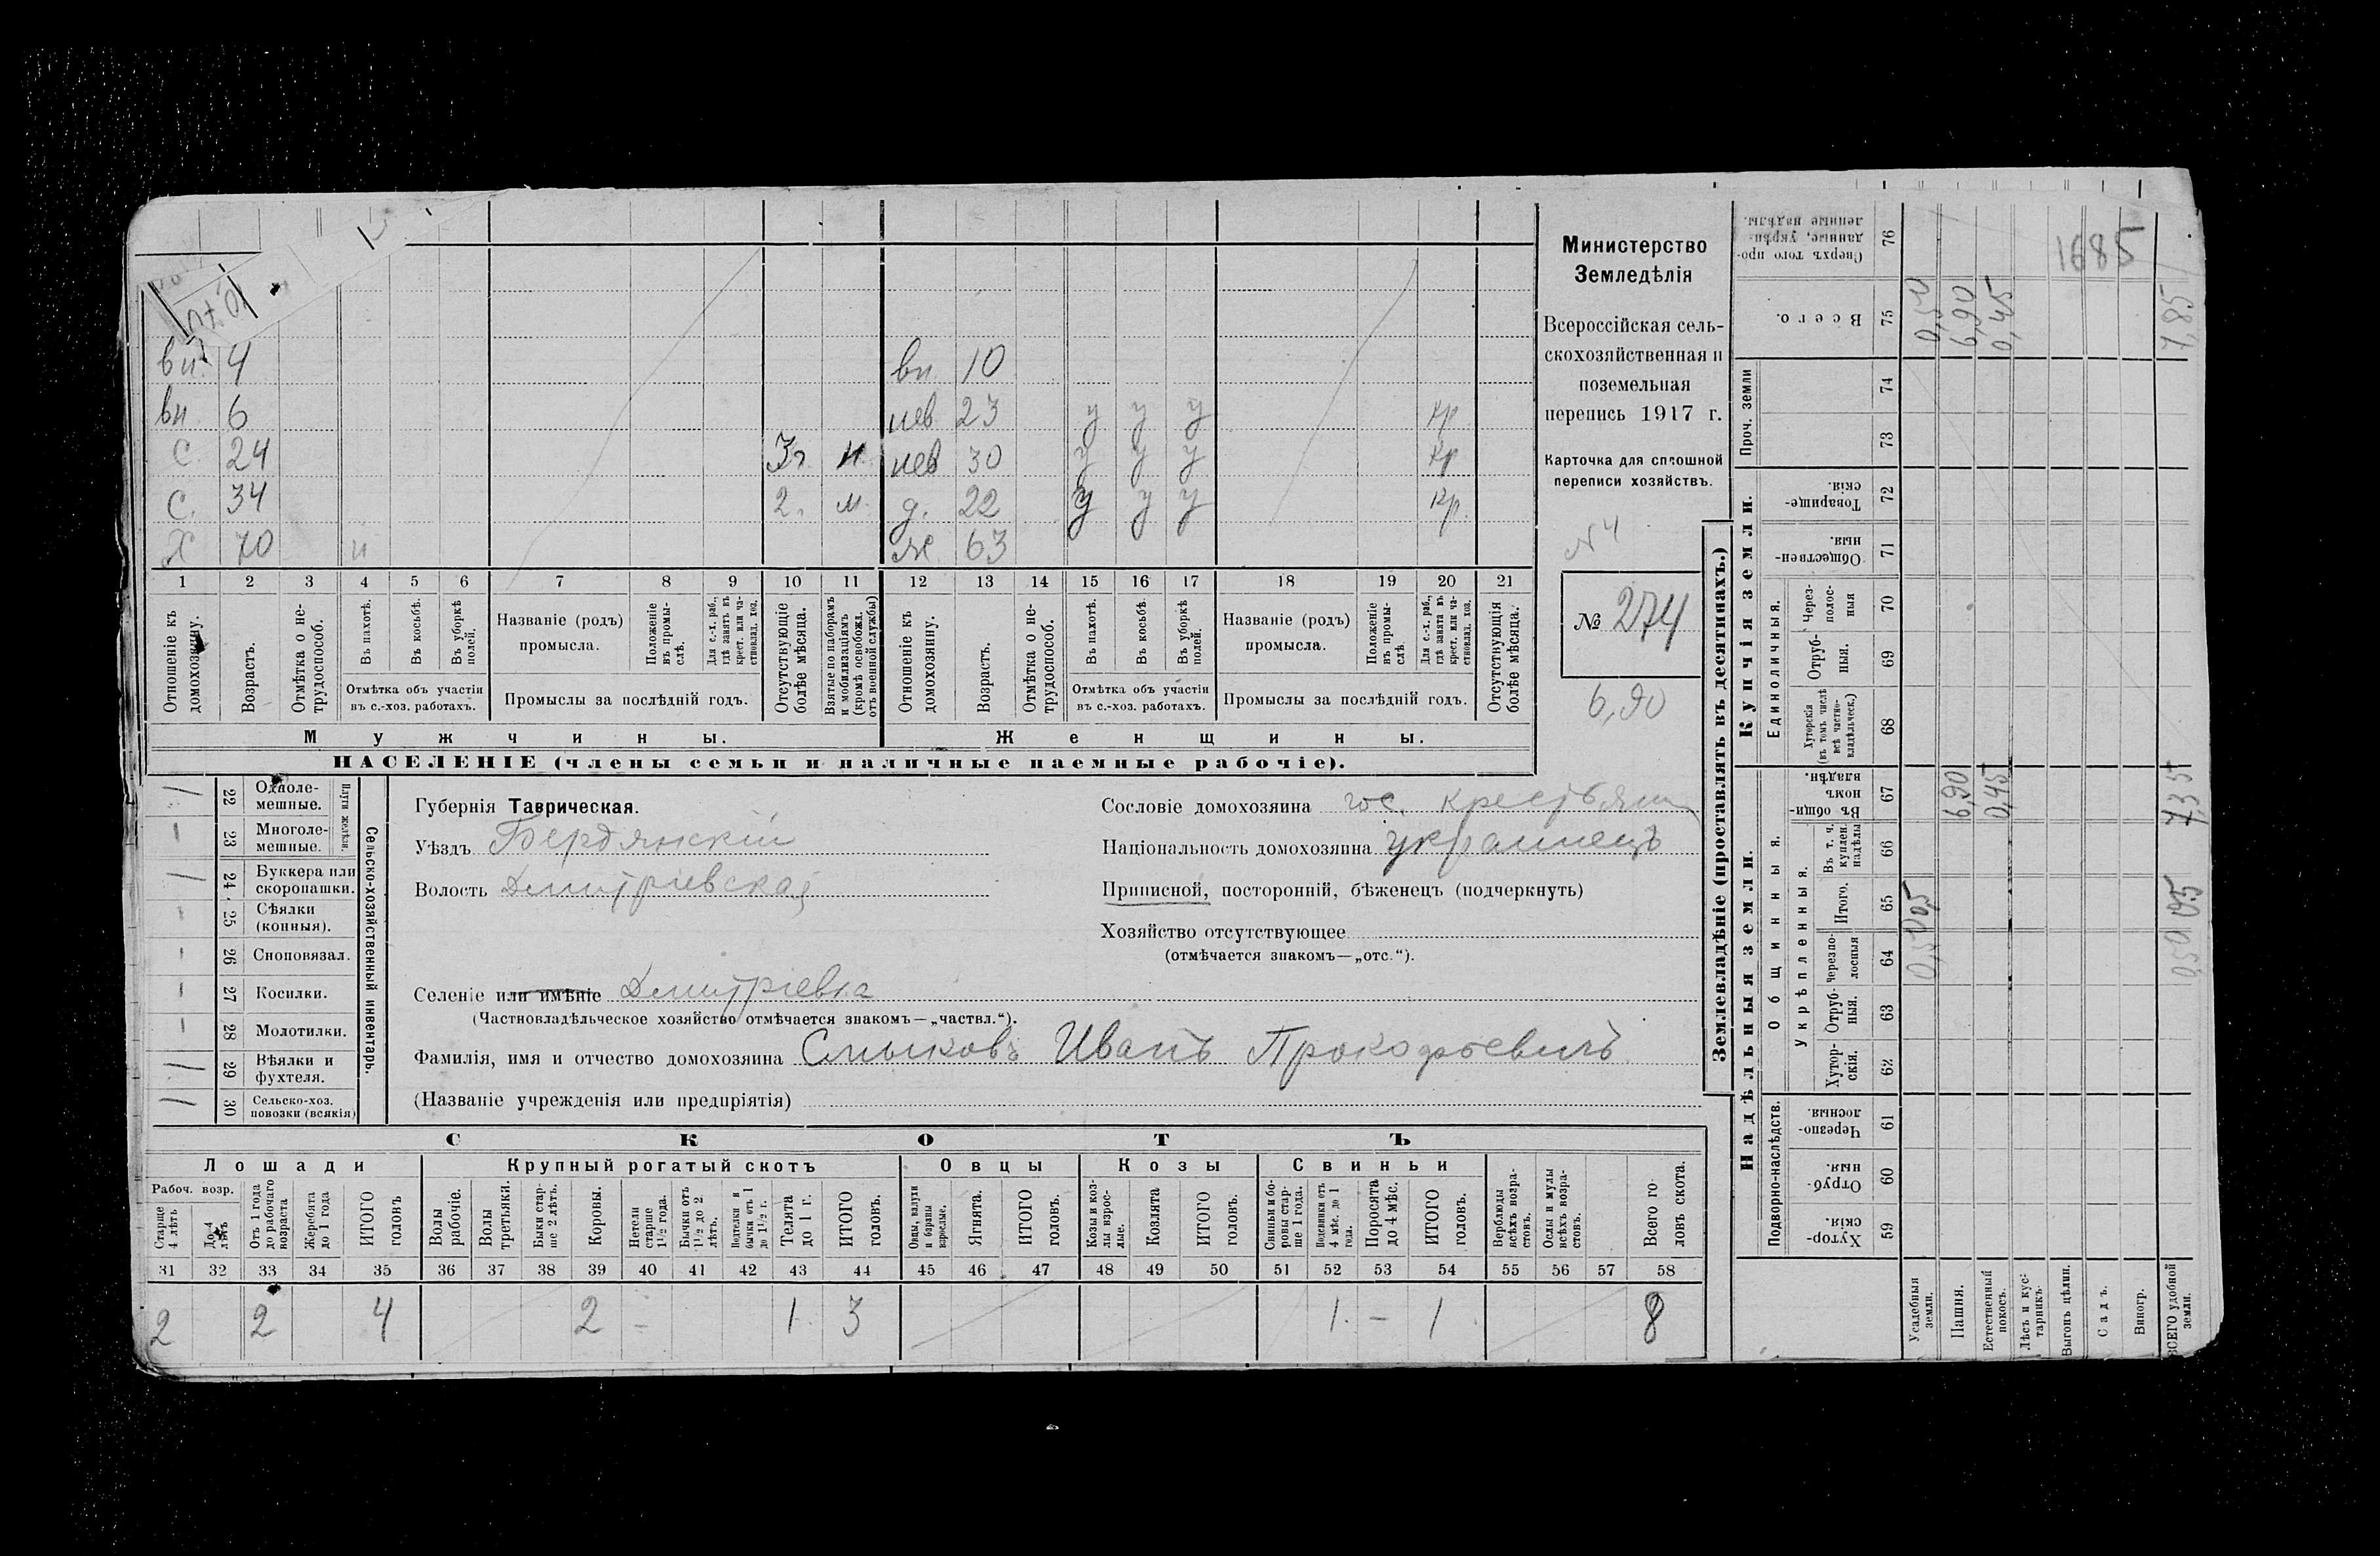 Министерство
Земледѣлія
Всероссійская сель-
скохозяйственная и
поземельная
перепись 1917 г.
Карточка для сплошной
переписи хозяйствъ.
N 4
№ 274
6,90
вн. 4
вн. 6
с 24 3г. м.
с. 34 2. м.
Х 70 н
вн. 10
нев 23 у у у кр
нев 30 у у у кр
д. 22 у у у кр.
ж 63
1 2 3 4 5 6 7 8 9 10 11 12 13 14 15 16 17 18 19 20 21
Отношеніе къ домохозяину.
Возрастъ.
Отмѣтка о не-трудоспособ.
Въ пахотѣ.
Въ косьбѣ.
Въ уборкѣ полей.
Отмѣтка объ участіи въ с.-хоз. работахъ.
Названіе (родъ) промысла.
Положеніе въ промы-слѣ.
Для с.-х. раб., гдѣ занятъ въ крест. или ча-стновлад. хоз.
Промыслы за послѣдній годъ.
Отсутствующіе болѣе мѣсяца.
Взятые по наборамъ и мобилизаціямъ (кромѣ освобожд. отъ военной службы)
Отношеніе къ домохозяину.
Возрастъ.
Отмѣтка о не-трудоспособ.
Въ пахотѣ.
Въ косьбѣ.
Въ уборкѣ полей.
Отмѣтка объ участіи въ с.-хоз. работахъ.
Названіе (родъ) промысла.
Положеніе въ промы-слѣ.
Для с.-х. раб., гдѣ занята въ крест. или ча-стновлад. хоз.
Промыслы за послѣдній годъ.
Отсутствующія болѣе мѣсяца.
Мужчины. Женщины.
НАСЕЛЕНІЕ (члены семьи и наличные наемные рабочіе).
Сельско-хозяйственный инвентарь.
Плуги желѣзн.
/ 22 Одноле-мешные.
– 23 Многоле-мешные.
/ 24 Буккера или скоропашки.
- 25 Сѣялки (конныя).
- 26 Сноповязал.
- 27 Косилки.
- 28 Молотилки.
/ 29 Вѣялки и фухтеля.
/ 30 Сельско-хоз. повозки (всякія)
Губернія Таврическая.
Уѣздъ Бердянскій
Волость Дмитріевская
Сословіе домохозяина гос. крестьян
Національность домохозяина украинецъ
Приписной, посторонній, бѣженецъ (подчеркнуть)
Хозяйство отсутствующее
(отмѣчается знакомъ—„отс.“).
Селеніе или имѣніе Дмитріевка
(Частновладѣльческое хозяйство отмѣчается знакомъ—„частвл.“).
Фамилія, имя и отчество домохозяина Смыковъ Иванъ Прокофьевичъ
(Названіе учрежденія или предпріятія)
СКОТЪ
Лошади Крупный рогатый скотъ Овцы Козы Свиньи
Рабоч. возр.
Старше 4 лѣтъ
До 4 лѣтъ
Отъ 1 года до рабочаго возраста
Жеребята до 1 года
ИТОГО головъ
Волы рабочіе.
Волы третьяки.
Быки стар-ше 2 лѣтъ.
Коровы.
Нетели старше 1½ года.
Бычки отъ 1½ до 2 лѣтъ.
Нетелки и бычки отъ 1 до 1½ г.
Телята до 1 г.
ИТОГО головъ.
Овцы, валухи и бараны взрослые.
Ягнята.
ИТОГО головъ.
Козы и коз-лы взрос-лые.
Козлята
ИТОГО головъ.
Свиньи и бо-ровы стар-ше 1 года.
Подсвинки отъ 4 мѣс. до 1 года.
Поросята до 4 мѣс.
ИТОГО головъ.
Верблюды всѣхъ возра-стовъ.
Ослы и мулы всѣхъ возра-стовъ.
Всего го-ловъ скота.
31 32 33 34 35 36 37 38 39 40 41 42 43 44 45 46 47 48 49 50 51 52 53 54 55 56 57 58
2 2 4 2 - 1 3 1. – 1 8
Землевладѣніе (проставлять въ десятинахъ.)
Надѣльныя земли. Купчія земли.
Подворно-наслѣдств.
Общинныя.
Укрѣпленныя.
Единоличныя.
Проч. земли
Хутор-скія. 59
Отруб-ныя. 60
Черезпо-лосныя 61
Хутор-скія. 62
Отруб-ныя. 63
Черезпо-лосныя 64
Итого. 65
Въ т. ч. куплен. надѣлы 66
Въ общин-номъ владѣн. 67
Хуторскія (въ томъ числѣ всѣ частно-владѣльческ.) 68
Отруб-ныя. 69
Через-полос-ныя 70
Обществен-ныя. 71
Товарище-скія. 72
73
74
Всего. 75
Сверхъ того про-данные, укрѣп-ленные надѣлы. 76
Усадебныя земли. 0,50 0,5 0,50
Пашня. 6,90 6,90
Естественный покосъ. 0,45 0,45
Лѣсъ и кус-тарникъ.
Выгонъ цѣлин.
Садъ.
Виногр.
ВСЕГО удобной земли. 0,50 0,5 7,35 7,85
1685